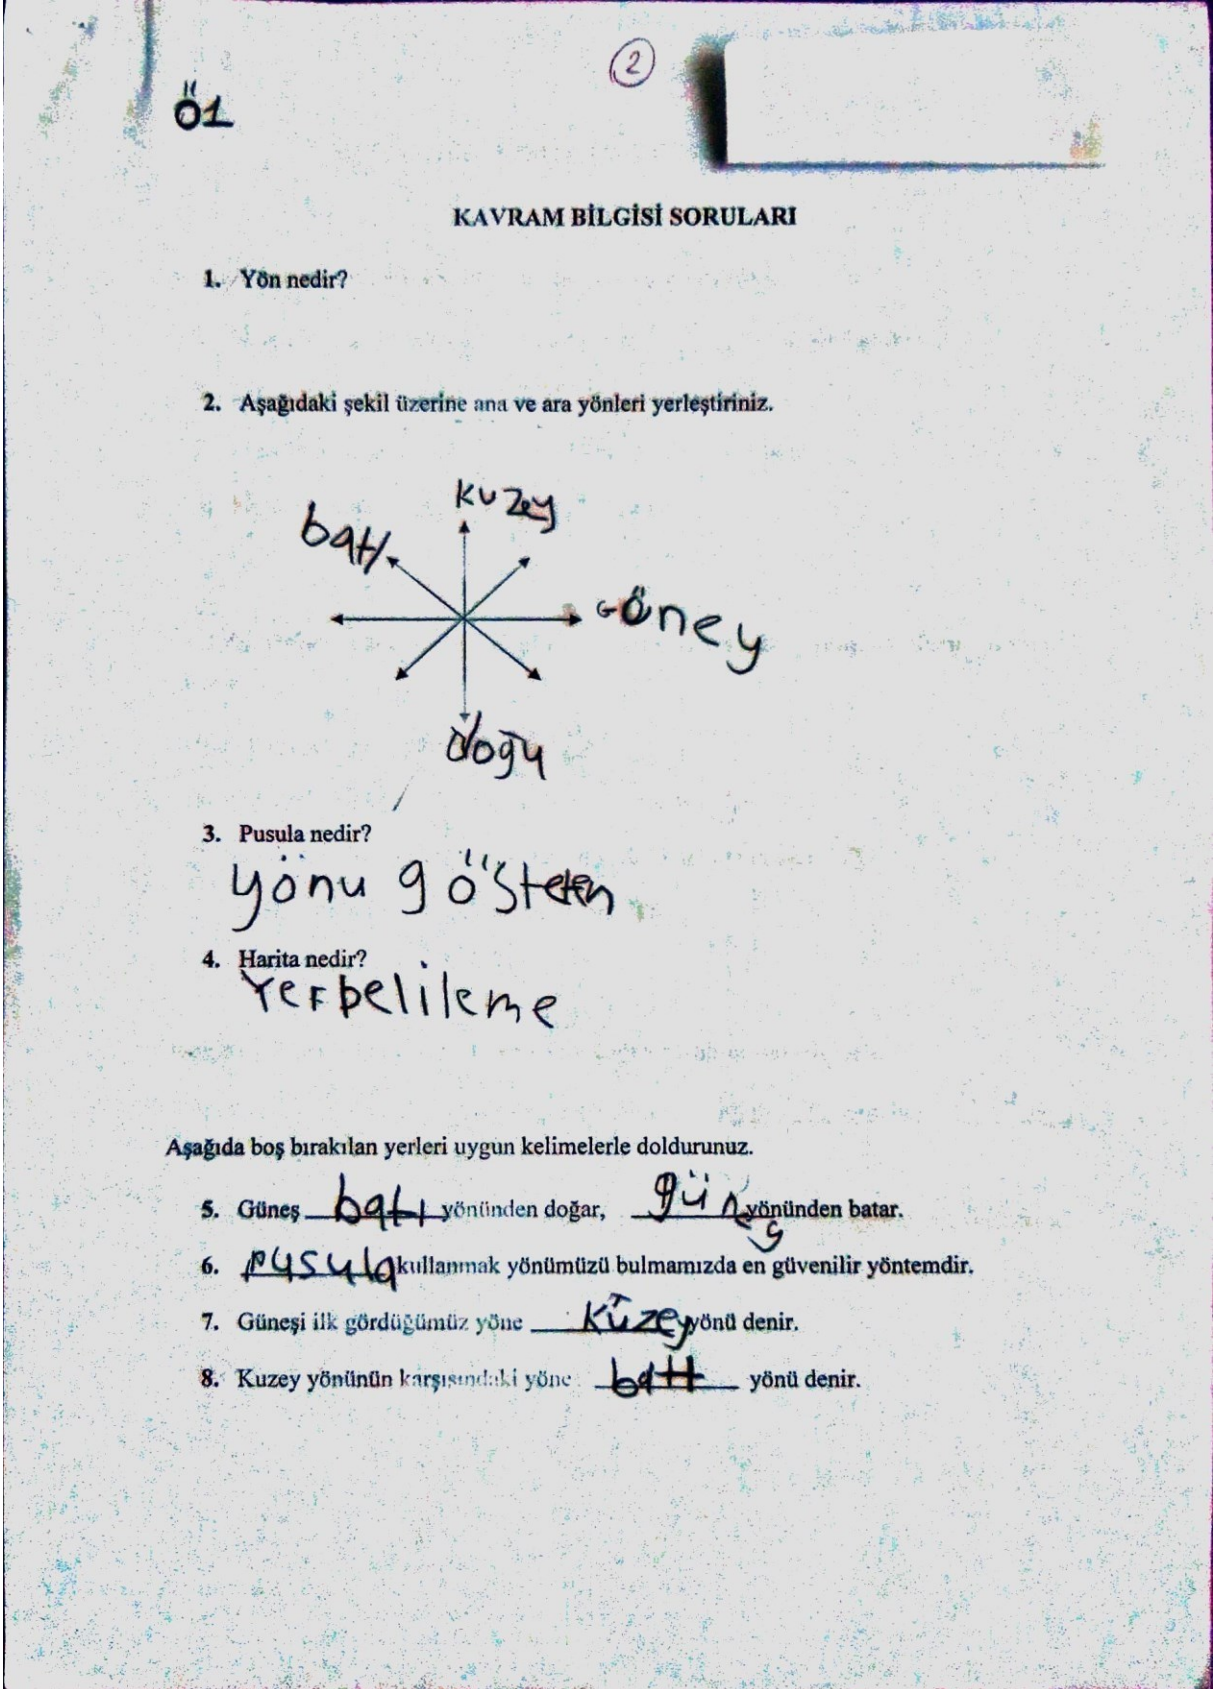 2
Ö1
KAVRAM BİLGİSİ SORULARI
1. Yön nedir?
2. Aşağıdaki şekil üzerine ana ve ara yönleri yerleştiriniz.
kuzey
batı
Göney
doğu
3. Pusula nedir?
yönu gösteten
4. Harita nedir?
Yerbelileme
Aşağıda boş bırakılan yerleri uygun kelimelerle doldurunuz.
5. Güneş batı yönünden doğar, güney yönünden batar.
6. pusula kullanmak yönümüzü bulmamızda en güvenilir yöntemdir.
7. Güneşi ilk gördüğümüz yöne kűzey yönü denir.
8. Kuzey yönünün karşısındaki yöne batı yönü denir.